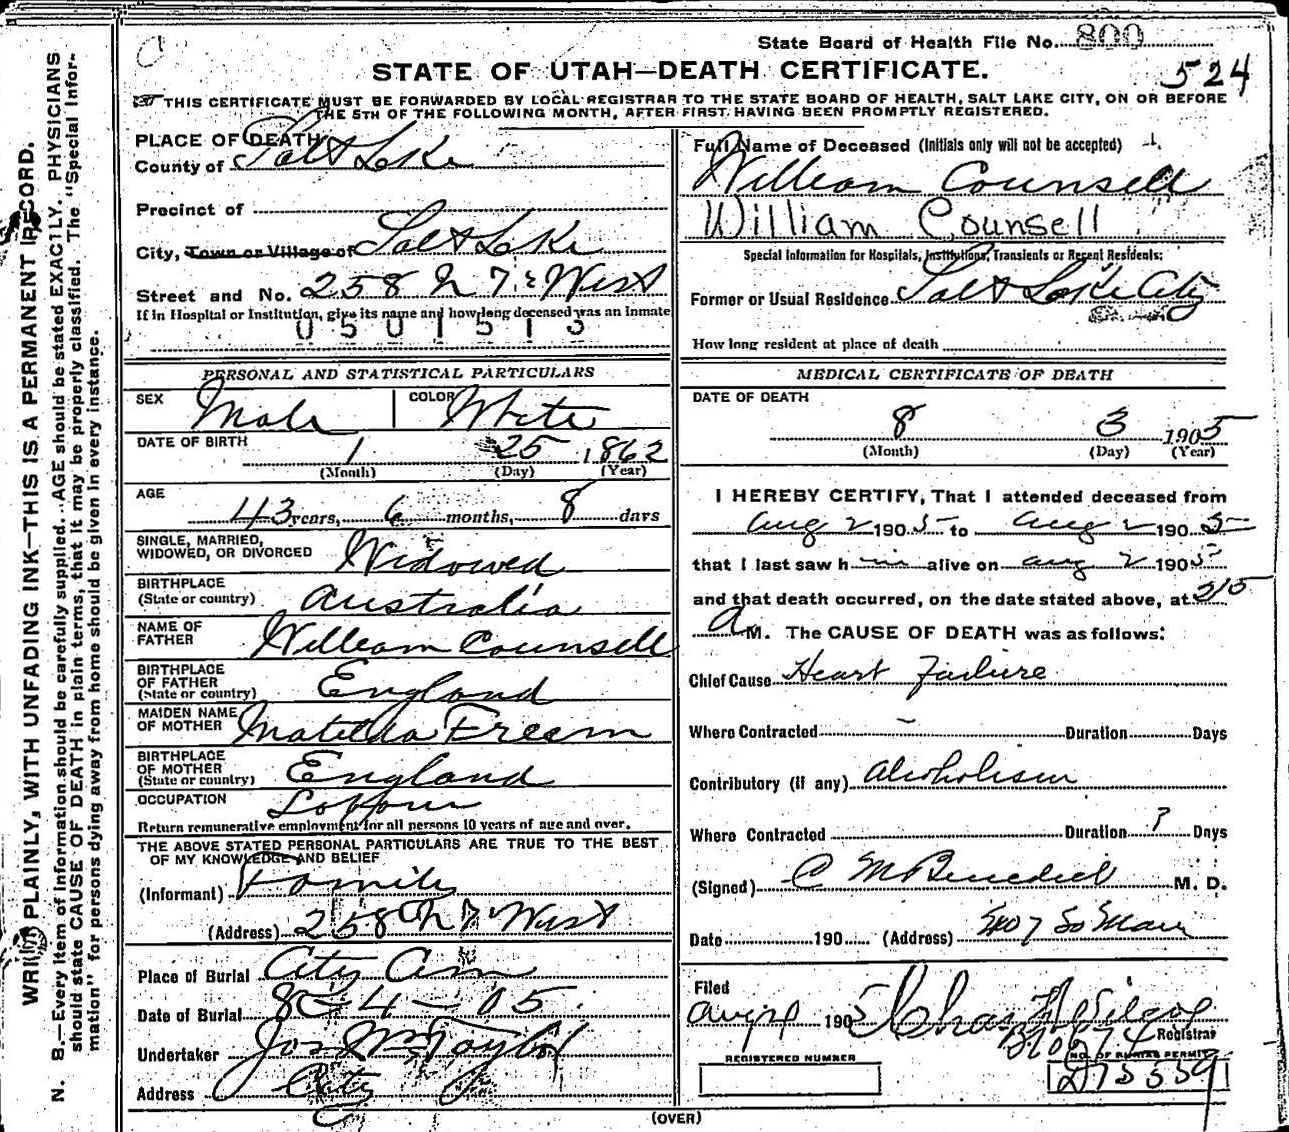 State Board of Health File No. 800
STATE OF UTAH—DEATH CERTIFICATE. 524
THIS CERTIFICATE MUST BE FORWARDED BY LOCAL REGISTRAR TO THE STATE BOARD OF HEALTH, SALT LAKE CITY, ON OR BEFORE
THE 5TH OF THE FOLLOWING MONTH, AFTER FIRST HAVING BEEN PROMPTLY REGISTERED.
WRITE PLAINLY, WITH UNFADING INK—THIS IS A PERMANENT RECORD.
N. B.—Every item of information should be carefully supplied. AGE should be stated EXACTLY. PHYSICIANS
should state CAUSE OF DEATH in plain terms, that it may be properly classified. The "Special Infor-
mation" for persons dying away from home should be given in every instance.
PLACE OF DEATH
County of Salt Lake
Precinct of
City, Town or Village of Salt Lake
Street and No. 258 N 7 West
If in Hospital or Institution, give its name and how long deceased was an inmate
0501513
PERSONAL AND STATISTICAL PARTICULARS
SEX Male COLOR White
DATE OF BIRTH 1 25 1862
(Month) (Day) (Year)
AGE
43 years, 6 months, 8 days
SINGLE, MARRIED,
WIDOWED, OR DIVORCED Widowed
BIRTHPLACE
(State or country) Australia
NAME OF
FATHER William Counsell
BIRTHPLACE
OF FATHER
(State or country) England
MAIDEN NAME
OF MOTHER Matilda
BIRTHPLACE
OF MOTHER
(State or country) England
OCCUPATION
Return remunerative employment for all persons 10 years of age and over.
THE ABOVE STATED PERSONAL PARTICULARS ARE TRUE TO THE BEST
OF MY KNOWLEDGE AND BELIEF
(Informant) Family
(Address) 258 N 7 West
Place of Burial City Cem
Date of Burial 8-4-05
Undertaker Jos Wm Taylor
Address City
Full Name of Deceased (Initials only will not be accepted)
William Counsell
William Counsell
Special Information for Hospitals, Institutions, Transients or Recent Residents:
Former or Usual Residence Salt Lake City
How long resident at place of death
MEDICAL CERTIFICATE OF DEATH
DATE OF DEATH
8 3 1905
(Month) (Day) (Year)
I HEREBY CERTIFY, That I attended deceased from
Aug 2 1905 to Aug 2 1905
that I last saw him alive on Aug 2 1905
and that death occurred, on the date stated above, at 315
A M. The CAUSE OF DEATH was as follows:
Chief Cause Heart Failure
Where Contracted Duration Days
Contributory (if any) Alcoholism
Where Contracted Duration ? Days
(Signed) C M Benedict M. D.
Date 190 (Address) 407 So Main
Filed
Aug 190 5 Chas
Registrar
REGISTERED NUMBER
NO. OF BURIAL PERMIT
(OVER)